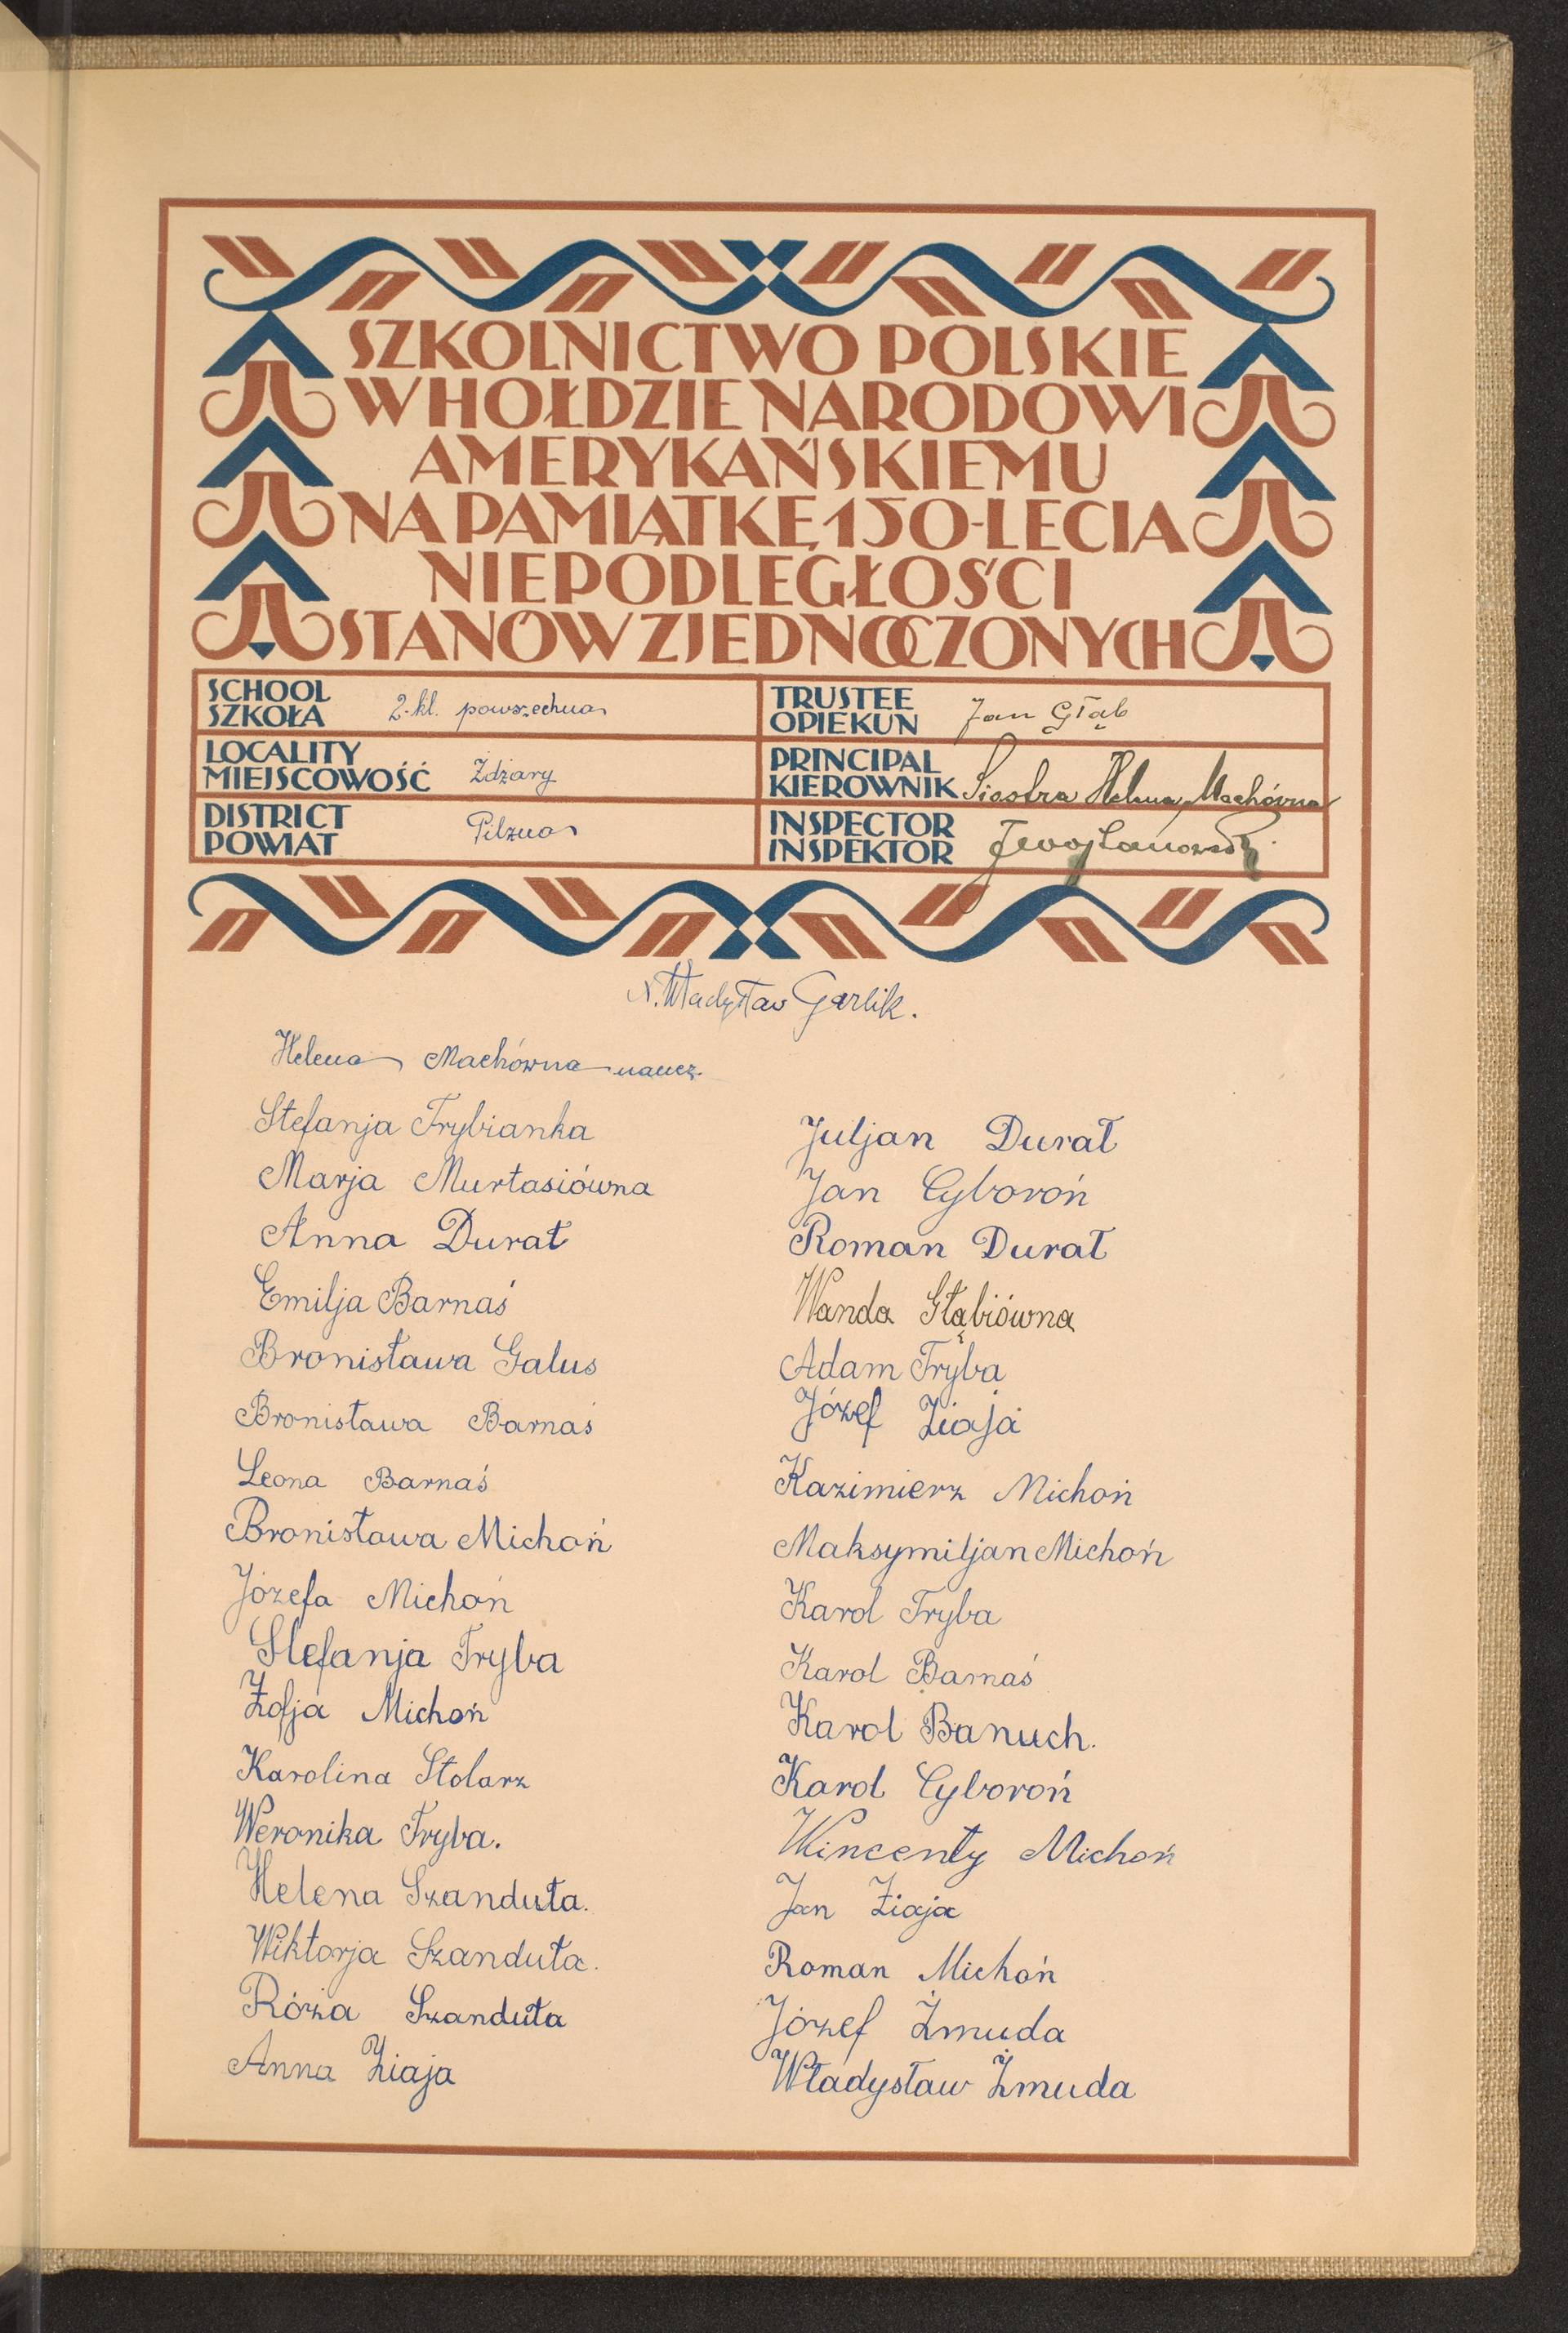 SZKOLNICTWO POLSKIE
W HOŁDZIE NARODOWI
AMERYKAŃSKIEMU
NA PAMIĄTKĘ 150-LECIA
NIEPODLEGŁOŚCI
STANÓW ZJEDNOCZONYCH
SCHOOL
SZKOŁA 2-kl. powszechna
TRUSTEE
OPIEKUN Jan Głąb
LOCALITY
MIEJSCOWOŚĆ Żdżary
PRINCIPAL
KIEROWNIK Siostra Helena Machówna
DISTRICT
POWIAT Pilzno
INSPECTOR
INSPEKTOR
Władysław Garlik.
Helena Machówna naucz.
Stefanja Trybianka
Marja Murtasiówna
Anna Durał
Emilja Barnaś
Bronisława Galus
Bronisława Barnaś
Leona Barnaś
Bronisława Michoń
Józefa Michoń
Stefanja Tryba
Zofja Michoń
Karolina Stolarz
Weronika Tryba.
Helena Szanduła.
Wiktorja Szanduła.
Róża Szanduła
Anna Ziaja
Juljan Durał
Jan Cyboroń
Roman Durał
Wanda Głąbiówna
Adam Tryba
Józef Ziaja
Kazimierz Michoń
Maksymiljan Michoń
Karol Tryba
Karol Barnaś
Karol Banuch.
Karol Cyboroń
Wincenty Michoń
Jan Ziaja
Roman Michoń
Józef Żmuda
Władysław Żmuda